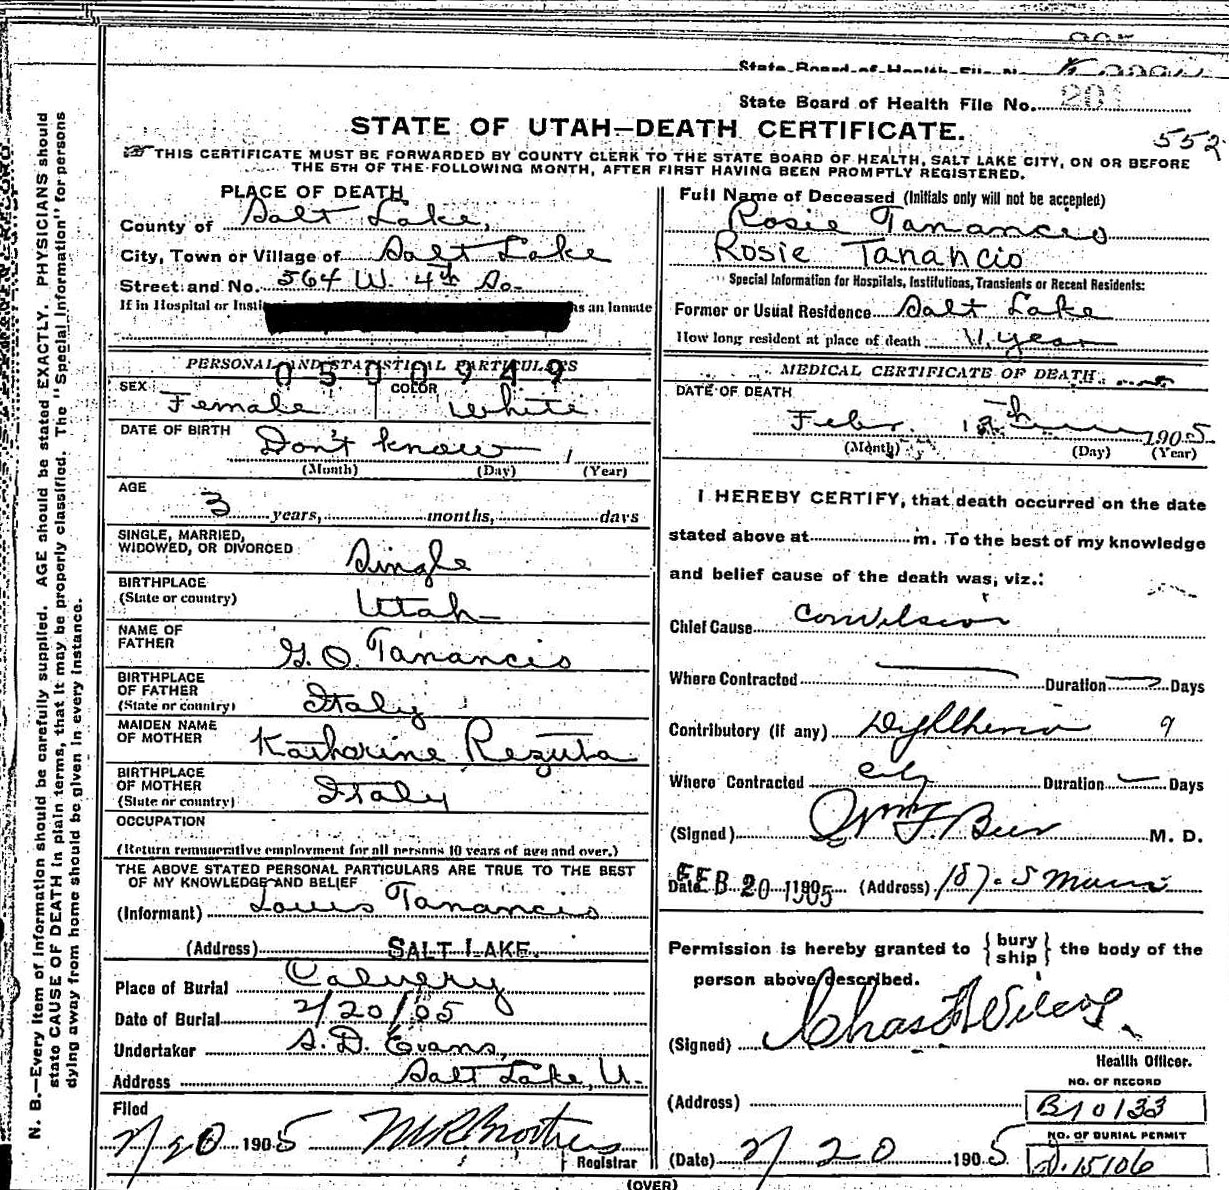 State Board of Health File No.
State Board of Health File No. 201
STATE OF UTAH—DEATH CERTIFICATE.
552
THIS CERTIFICATE MUST BE FORWARDED BY COUNTY CLERK TO THE STATE BOARD OF HEALTH, SALT LAKE CITY, ON OR BEFORE
THE 5TH OF THE FOLLOWING MONTH, AFTER FIRST HAVING BEEN PROMPTLY REGISTERED.
N. B.—Every item of information should be carefully supplied. AGE should be stated EXACTLY. PHYSICIANS should
state CAUSE OF DEATH in plain terms, that it may be properly classified. The "Special Information" for persons
dying away from home should be given in every instance.
PLACE OF DEATH
County of Salt Lake,
City, Town or Village of Salt Lake
Street and No. 564 W. 4th So-
If in Hospital or Insti as an inmate
PERSONAL AND STATISTICAL PARTICULARS
0500949
SEX Female COLOR White
DATE OF BIRTH Don't know
(Month) (Day) (Year)
AGE
3 years, months, days
SINGLE, MARRIED,
WIDOWED, OR DIVORCED Single
BIRTHPLACE
(State or country) Utah
NAME OF
FATHER G. O. Tanancio
BIRTHPLACE
OF FATHER
(State or country) Italy
MAIDEN NAME
OF MOTHER Katharine Rezuta
BIRTHPLACE
OF MOTHER
(State or country) Italy
OCCUPATION
(Return remunerative employment for all persons 10 years of age and over.)
THE ABOVE STATED PERSONAL PARTICULARS ARE TRUE TO THE BEST
OF MY KNOWLEDGE AND BELIEF
(Informant) Louis Tanancio
(Address) SALT LAKE.
Place of Burial Calvery
Date of Burial 2/20/05
Undertaker S. D. Evans,
Address Salt Lake, U.
Filed
2/20 1905
Registrar
Full Name of Deceased (Initials only will not be accepted)
Rosie Tanancio
Rosie Tanancio
Special Information for Hospitals, Institutions, Transients or Recent Residents:
Former or Usual Residence Salt Lake
How long resident at place of death year
MEDICAL CERTIFICATE OF DEATH
DATE OF DEATH
Febr. 1905
(Month) (Day) (Year)
I HEREBY CERTIFY, that death occurred on the date
stated above at m. To the best of my knowledge
and belief cause of the death was, viz.:
Chief Cause Convulsion
Where Contracted Duration Days
Contributory (if any) 9
Where Contracted city Duration Days
(Signed) M. D.
Date FEB 20 1905 (Address) 157. S Main
Permission is hereby granted to { bury ship } the body of the
person above described.
(Signed) Chas F Wilcox
Health Officer.
(Address)
NO. OF RECORD
B10133
NO. OF BURIAL PERMIT
D.15106
(Date) 2/20 1905
(OVER)